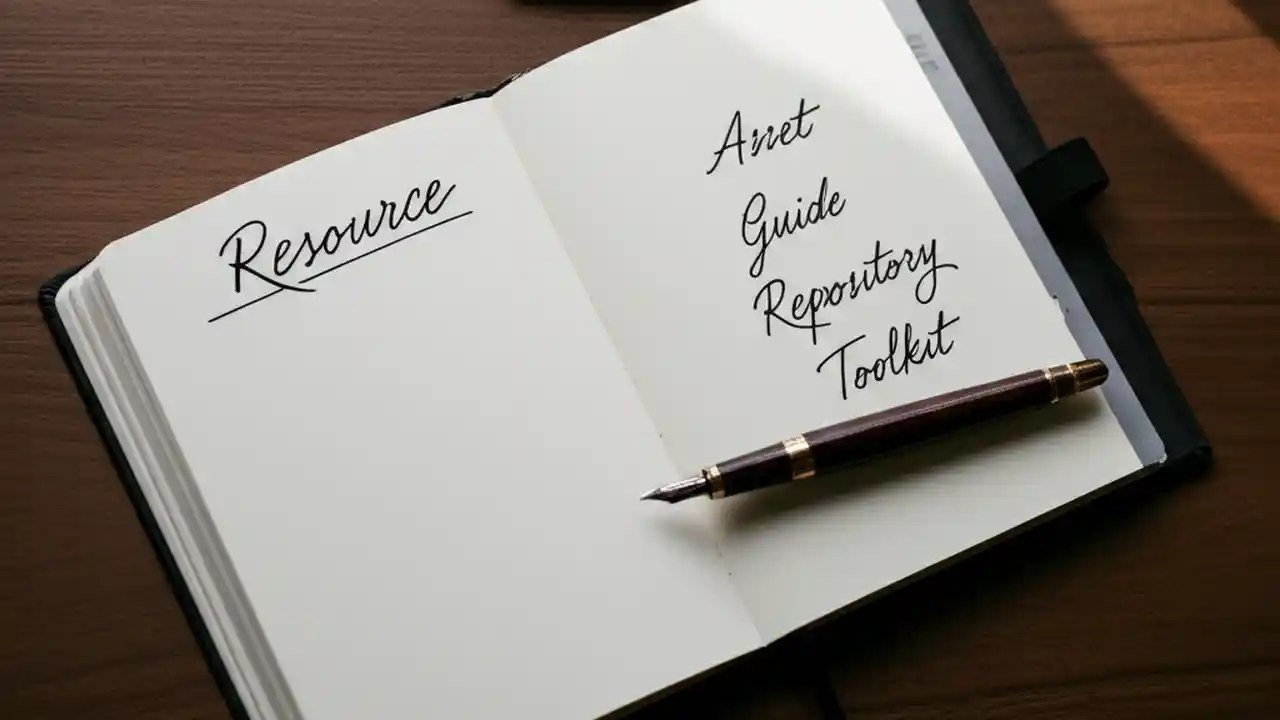 Resource
Asset
Guide
Repository
Toolkit